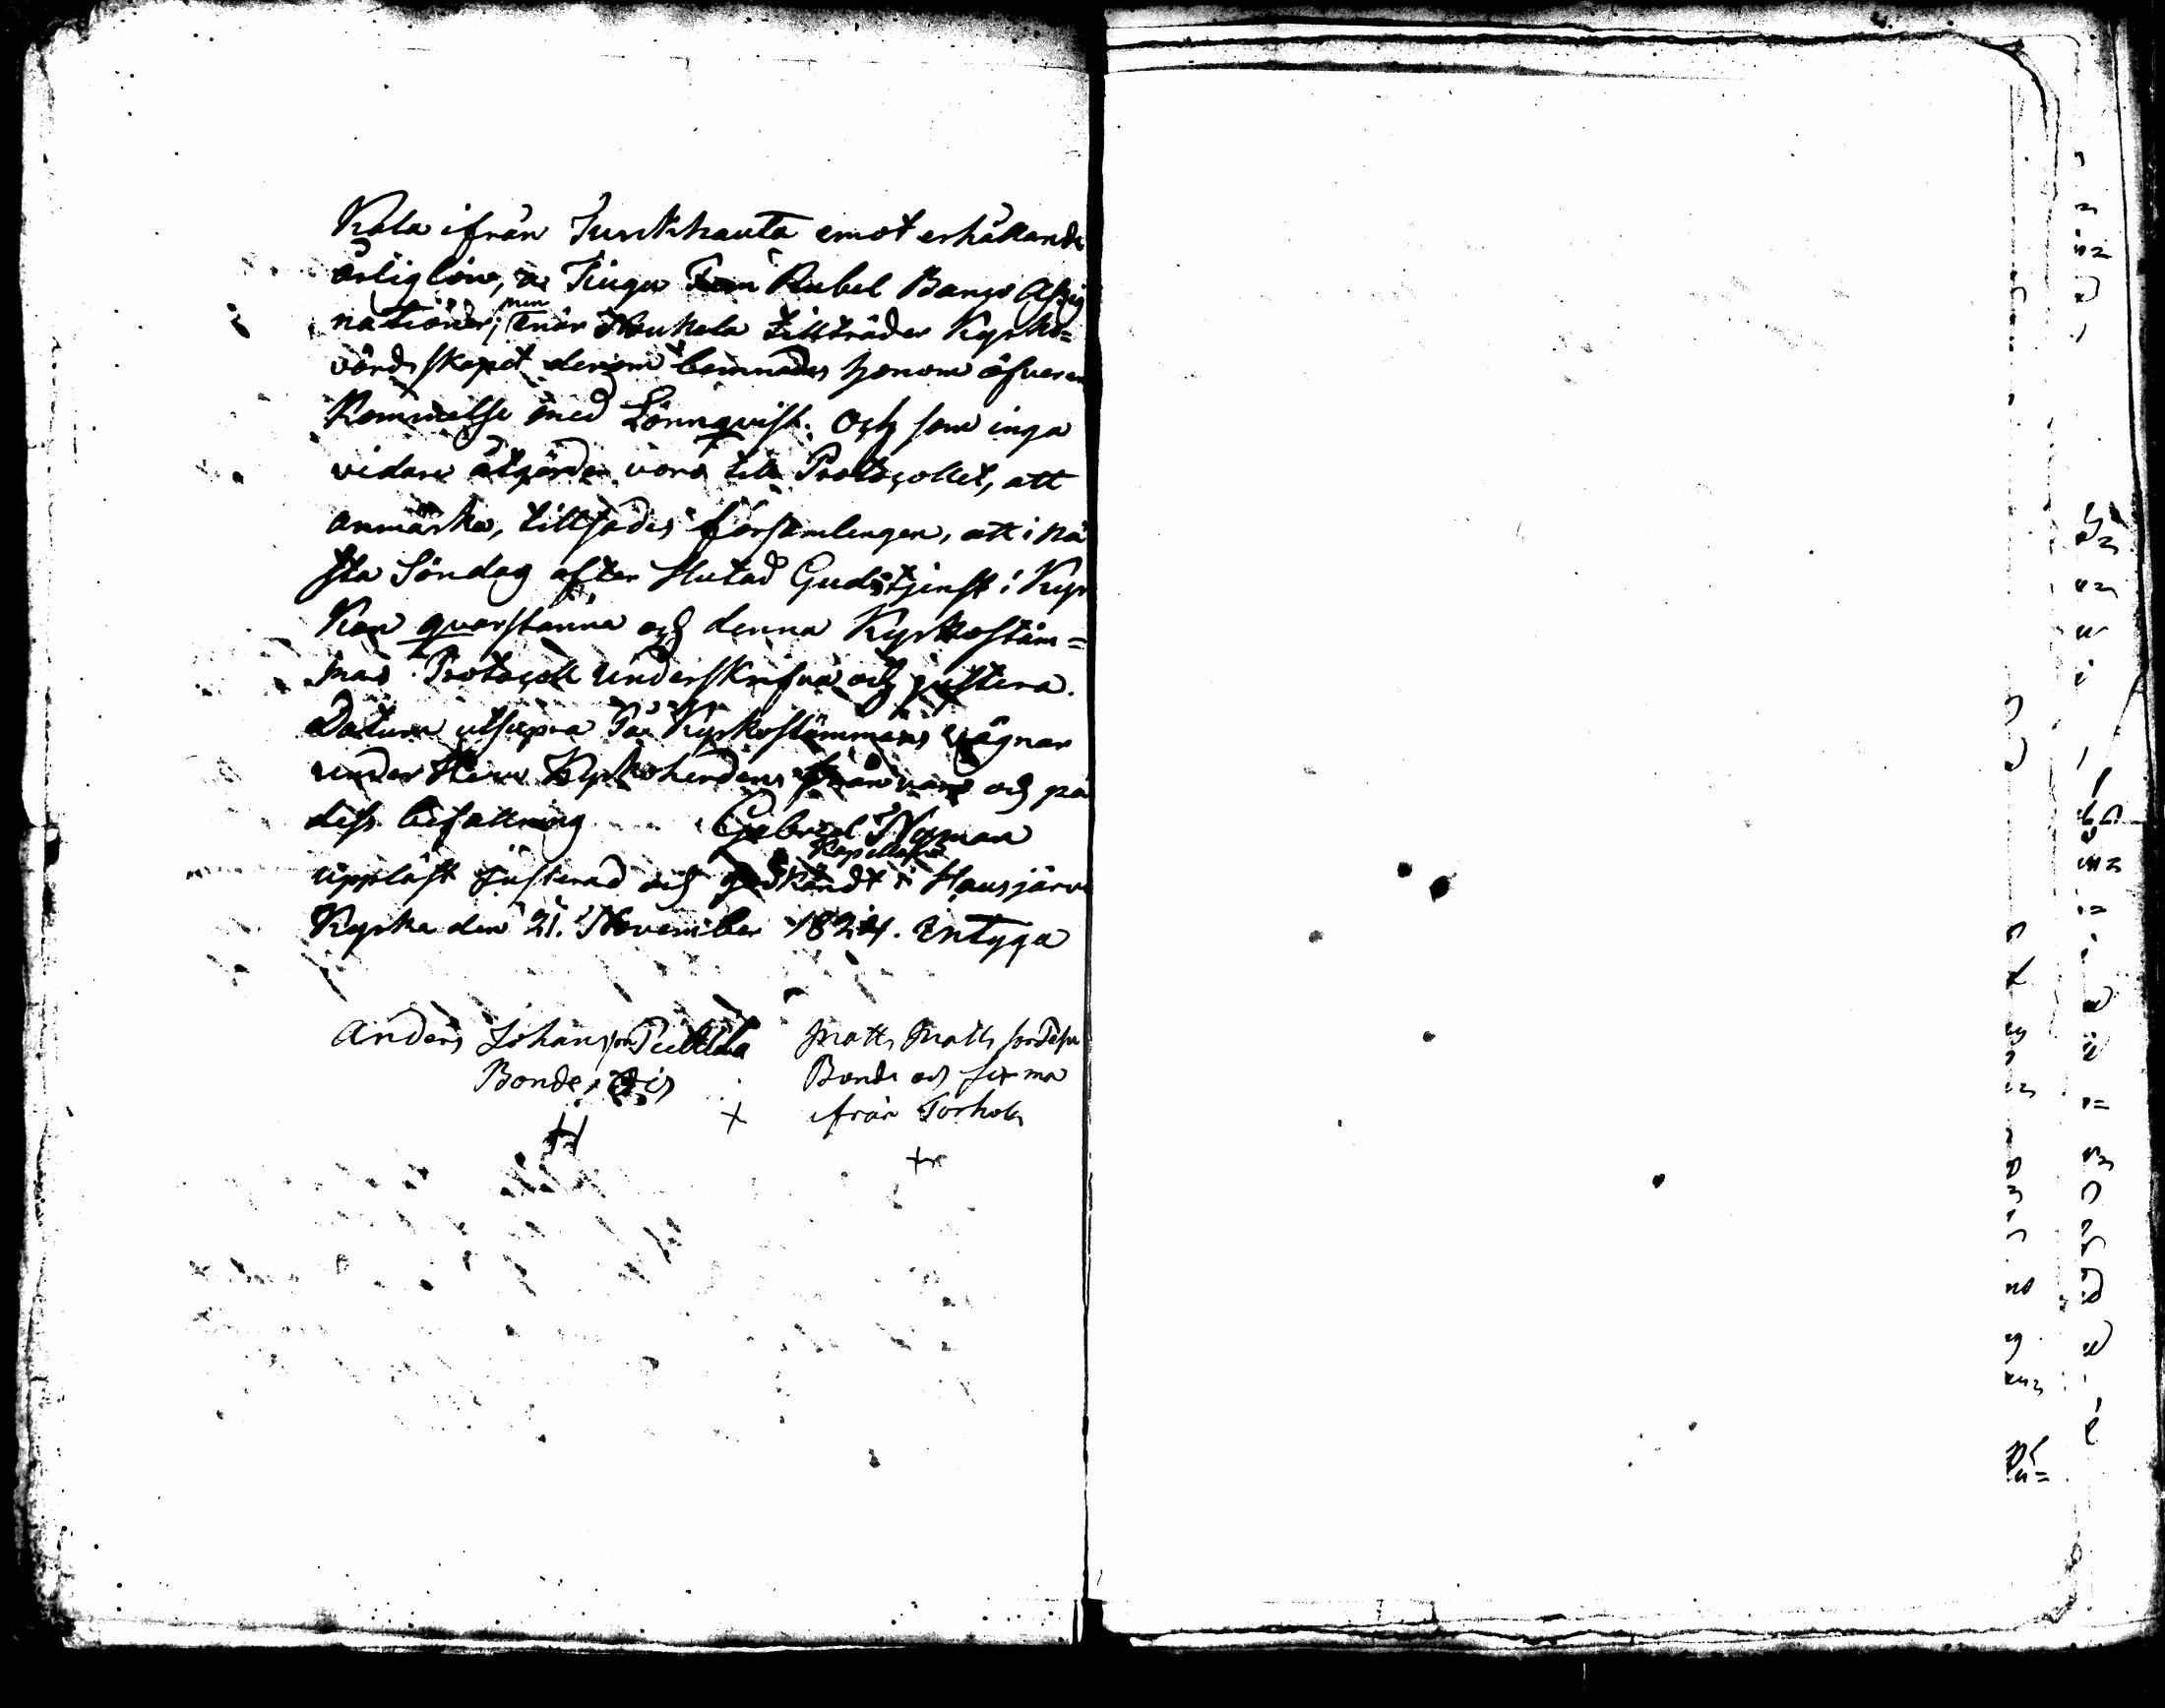 Kala ifrån Turkhauta emot erhållande
årlig lön, a Tiugu Fem Rubel Banco Assig
nationer; men enär Naukala tillträder Kyrko-
värdskapet denom lemnades honom öfveren
Kommelse med Lönnqvist. Och som inga
vidare åtgärder voro till Protocollet, att
anmärka, tillsades församlingen, att i nä
sta Söndag efter slutad Gudstjenst i Kyr
kan qvarstanna och denna Kyrkostäm=
mas Protocoll underskrifva och justera.
Datum utsupra På Kyrkostämmans vägnar
under Herr Kyrkoherdens frånvaro och på
dess befallning Gabriel Nyman
Kapellan
uppläst justerad och godkändt i Hausjärvi
Kyrka den 21. November 1824. intyga
Anders Johansson Puttula Matts Matts son
Bonde Bonde och
H × ifrån Torhola
+